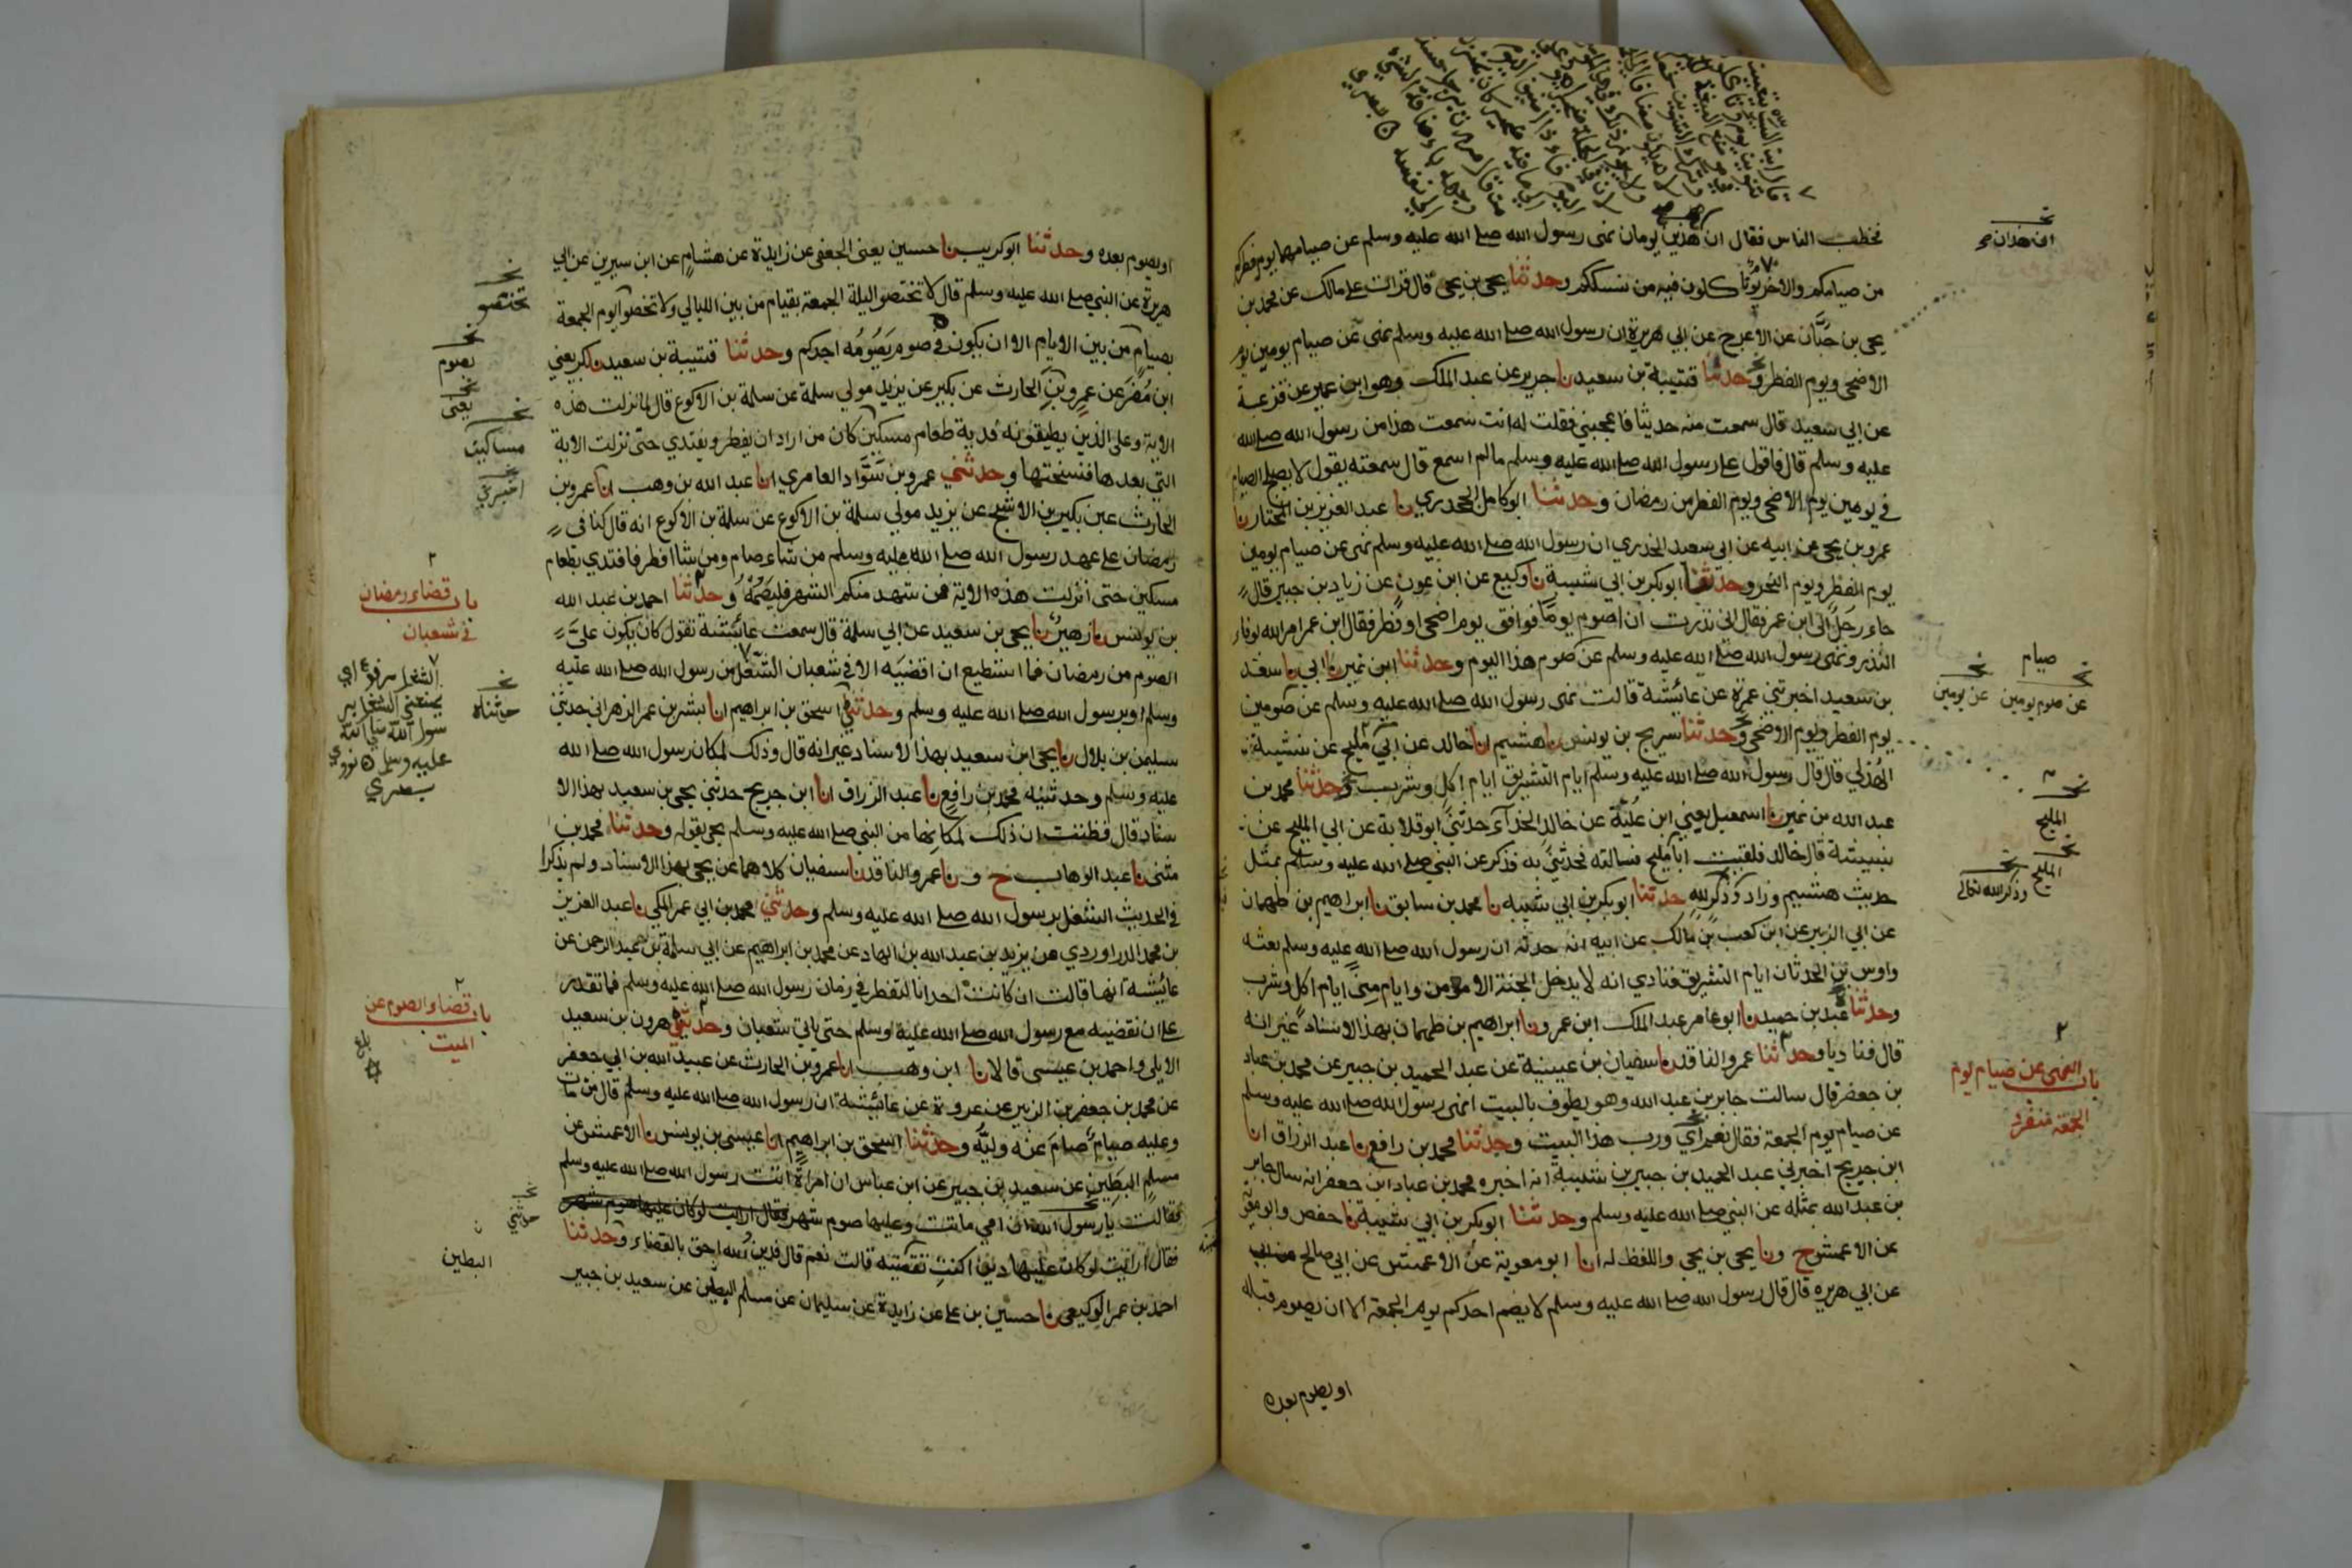 فخطب الناس فقال ان هذين يومان نهى رسول الله صلى الله عليه وسلم عن صيامهما يوم فطركم
من صيامكم والاخر يوما تاكلون فيه من نسككم وحدثنا يحيى بن يحيى قال قرات على مالك عن محمد بن
يحيى بن حبان عن الاعرج عن ابي هريرة ان رسول الله صلى الله عليه وسلم نهى عن صيام يومين يوم
الاضحى ويوم الفطر وحدثنا قتيبة بن سعيد نا جرير عن عبد الملك وهو ابن عمير عن قزعة
عن ابي سعيد قال سمعت منه حديثا فاعجبني فقلت له انت سمعت هذا من رسول الله صلى الله
عليه وسلم قال فاقول على رسول الله صلى الله عليه وسلم مالم اسمع قال سمعته يقول لا يصلح الصيام
في يومين يوم الاضحى ويوم الفطر من رمضان وحدثنا ابو كامل الجحدري نا عبد العزيز بن المختار نا
عمرو بن يحيى عن ابيه عن ابي سعيد الخدري ان رسول الله صلى الله عليه وسلم نهى عن صيام يومين
يوم الفطر ويوم النحر وحدثنا ابو بكر بن ابي شيبة نا وكيع عن ابن عون عن زياد بن جبير قال
جاء رجل الى ابن عمر فقال اني نذرت ان اصوم يوما فوافق يوم اضحى او فطر فقال ابن عمر امر الله بوفاء
النذر ونهى رسول الله صلى الله عليه وسلم عن صوم هذا اليوم وحدثنا ابن نمير نا ابي نا سعد
بن سعيد اخبرتني عمرة عن عائشة قالت نهى رسول الله صلى الله عليه وسلم عن صومين
يوم الفطر ويوم الاضحى وحدثنا سريج بن يونس نا هشيم انا خالد عن ابي مليح عن نبيشة
الهذلي قال قال رسول الله صلى الله عليه وسلم ايام التشريق ايام اكل وشرب وحدثنا محمد بن
عبد الله بن نمير نا اسمعيل يعني ابن علية عن خالد الحذاء حدثني ابو قلابة عن ابي المليح عن
نبيشة قال خالد فلقيت ابا مليح فسالته فحدثني به فذكر عن النبي صلى الله عليه وسلم بمثل
حديث هشيم وزاد وذكر لله حدثنا ابو بكر بن ابي شيبه نا محمد بن سابق نا ابراهيم بن طهمان
عن ابي الزبير عن ابن كعب بن مالك عن ابيه انه حدثه ان رسول الله صلى الله عليه وسلم بعثه
واوس بن الحدثان ايام التشريق فنادي انه لا يدخل الجنة الا مومن وايام منى ايام اكل وشرب
وحدثناه عبد بن حميد نا ابو عامر عبد الملك ابن عمرو نا ابراهيم بن طهمان بهذا الاسناد غير انه
قال فناديا وحدثنا عمرو الناقد نا سفيان بن عيينة عن عبد الحميد بن جبير عن محمد بن عباد
بن جعفر قال سالت جابر بن عبد الله وهو يطوف بالبيت انهى رسول الله صلى الله عليه وسلم
عن صيام يوم الجمعة فقال نعم اي ورب هذا البيت وحدثنا محمد بن رافع نا عبد الرزاق انا
ابن جريج اخبرني عبد الحميد بن جبير بن شيبة انه اخبره محمد بن عباد ابن جعفر انه سال جابر
بن عبد الله بمثله عن النبي صلى الله عليه وسلم وحدثنا ابو بكر بن ابي شيبة نا حفص وابو معوية
عن الاعمش ح ونا يحيى بن يحيى واللفظ له انا ابو معوية عن الاعمش عن ابي صالح
عن ابي هريره قال قال رسول الله صلى الله عليه وسلم لا يصم احدكم يوم الجمعة الا ان يصوم قبله
او يصوم بعده
صيام
عن صوم يومين
عن يومين
المليح
المليح
وذكر الله تعالى
باب النهي عن صيام يوم
الجمعة منفرد
او يصوم بعده وحدثنا ابو كريب نا حسين يعنى الجعفى عن زايدة عن هشام عن ابن سيرين عن ابي
هريرة عن النبي صلى الله عليه وسلم قال لا تختصوا ليلة الجمعة بقيام من بين الليالي ولا تخصوا يوم الجمعة
بصيام من بين الايام الا ان يكون في صوم يصومه احدكم وحدثنا قتيبة بن سعيد نا بكر يعني
ابن مضر عن عمرو بن الحارث عن بكير عن يزيد مولي سلمة عن سلمة بن الاكوع قال لما نزلت هذه
الاية وعلى الذين يطيقونه فدية طعام مسكين كان من اراد ان يفطر ويفتدي حتى نزلت الاية
التي بعدها فنسختها وحدثني عمرو بن سواد العامري انا عبد الله بن وهب انا عمرو بن
الحارث عن بكير بن الاشج عن يزيد مولى سلمة بن الاكوع عن سلمة بن الاكوع انه قال كنا في
رمضان على عهد رسول الله صلى الله عليه وسلم من شاء صام ومن شا افطر فافتدي بطعام
مسكين حتى انزلت هذه الاية فمن شهد منكم الشهر فليصمه وحدثنا احمد بن عبد الله
بن يونس نا زهير نا يحيى بن سعيد عن ابي سلمة قال سمعت عائشة تقول كان يكون علي
الصوم من رمضان فما استطيع ان اقضيه الا في شعبان الشغل من رسول الله صلى الله عليه
وسلم او برسول الله صلى الله عليه وسلم وحدثني اسحق بن ابراهيم انا بشر بن عمر الزهراني حدثني
سليمن بن بلال نا يحيى ابن سعيد بهذا الاسناد غير انه قال وذلك لمكان رسول الله صلى الله
عليه وسلم وحدثنيه محمد بن رافع نا عبد الرزاق انا ابن جريج حدثني يحيى بن سعيد بهذا الا
سناد قال فظننت ان ذلك لمكانها من النبي صلى الله عليه وسلم يحيى يقوله وحدثنا محمد بن
مثنى نا عبد الوهاب ح ونا عمرو الناقد نا سفيان كلاهما عن يحيى بهذا الاسناد ولم يذكرا
في الحديث الشغل برسول الله صلى الله عليه وسلم وحدثني محمد بن ابي عمر المكي نا عبد العزيز
بن محمد الدراوردي عن يزيد بن عبد الله بن الهاد عن محمد بن ابراهيم عن ابي سلمة بن عبد الرحمن عن
عائشة انها قالت ان كانت احدانا لتفطر في زمان رسول الله صلى الله عليه وسلم فما تقدر
على ان تقضيه مع رسول الله صلى الله عليه وسلم حتى ياتي شعبان وحدثني هرون بن سعيد
الايلي واحمد بن عيسى قالا نا ابن وهب انا عمرو بن الحارث عن عبيد الله بن ابي جعفر
عن محمد بن جعفر بن الزبير عن عروة عن عائشة ان رسول الله صلى الله عليه وسلم قال من مات
وعليه صيام صام عنه وليه وحدثنا اسحق بن ابراهيم انا عيسى بن يونس نا الاعمش عن
مسلم البطين عن سعيد بن جبير عن ابن عباس ان امراة اتت رسول الله صلى الله عليه وسلم
فقالت يا رسول الله ان امي ماتت وعليها صوم شهر فقال ارايت لو كان عليها صوم شهر
فقال ارايت لو كان عليها دين اكنت تقضيه قالت نعم قال فدين الله احق بالقضاء وحدثنا
احمد بن عمر الوكيعي نا حسين بن علي عن زايدة عن سليمان عن مسلم البطين عن سعيد بن جبير
تختصو
بصوم
يعني
مساكين
اخبرني
باب قضاء رمضان
في شعبان
الشغل مرفوع اي
يمنعني الشغل بر
سول الله صلى الله
عليه وسلم نووي
حدثناه
باب قضاء الصوم عن
الميت
بلغ
حدثني
البطين